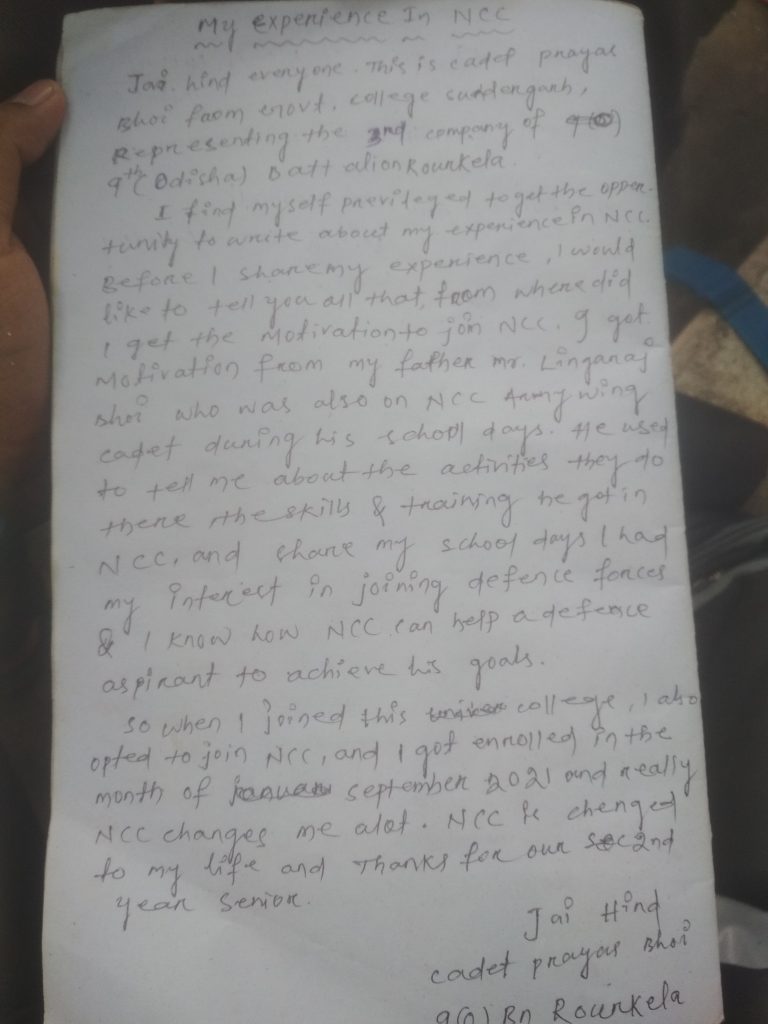 My experience In NCC
Jai hind everyone. This is cadet prayas
Bhoi from Govt. college sundergarh,
Representing the 3nd company of
9th (Odisha) Batt alion Rourkela.
I find myself previleged to get the oppor-
tunity to write about my experience in NCC.
Before I share my experience, I would
like to tell you all that, from where did
I get the Motivation to join NCC. I got
Motivation from my father mr. Lingaraj
Bhoi who was also on NCC Army wing
cadet during his school days. He used
to tell me about the activities they do
there, the skills & training he got in
NCC, and share my school days I had
my interest in joining defence forces
& I know how NCC can help a defence
aspirant to achieve his goals.
So when I joined this college, I also
opted to join NCC, and I got enrolled in the
month of september 2021 and really
NCC changes me alot. NCC is chenged
to my life and Thanks for our 2nd
year senior.
Jai Hind
cadet prayas Bhoi
9(O) Bn Rourkela